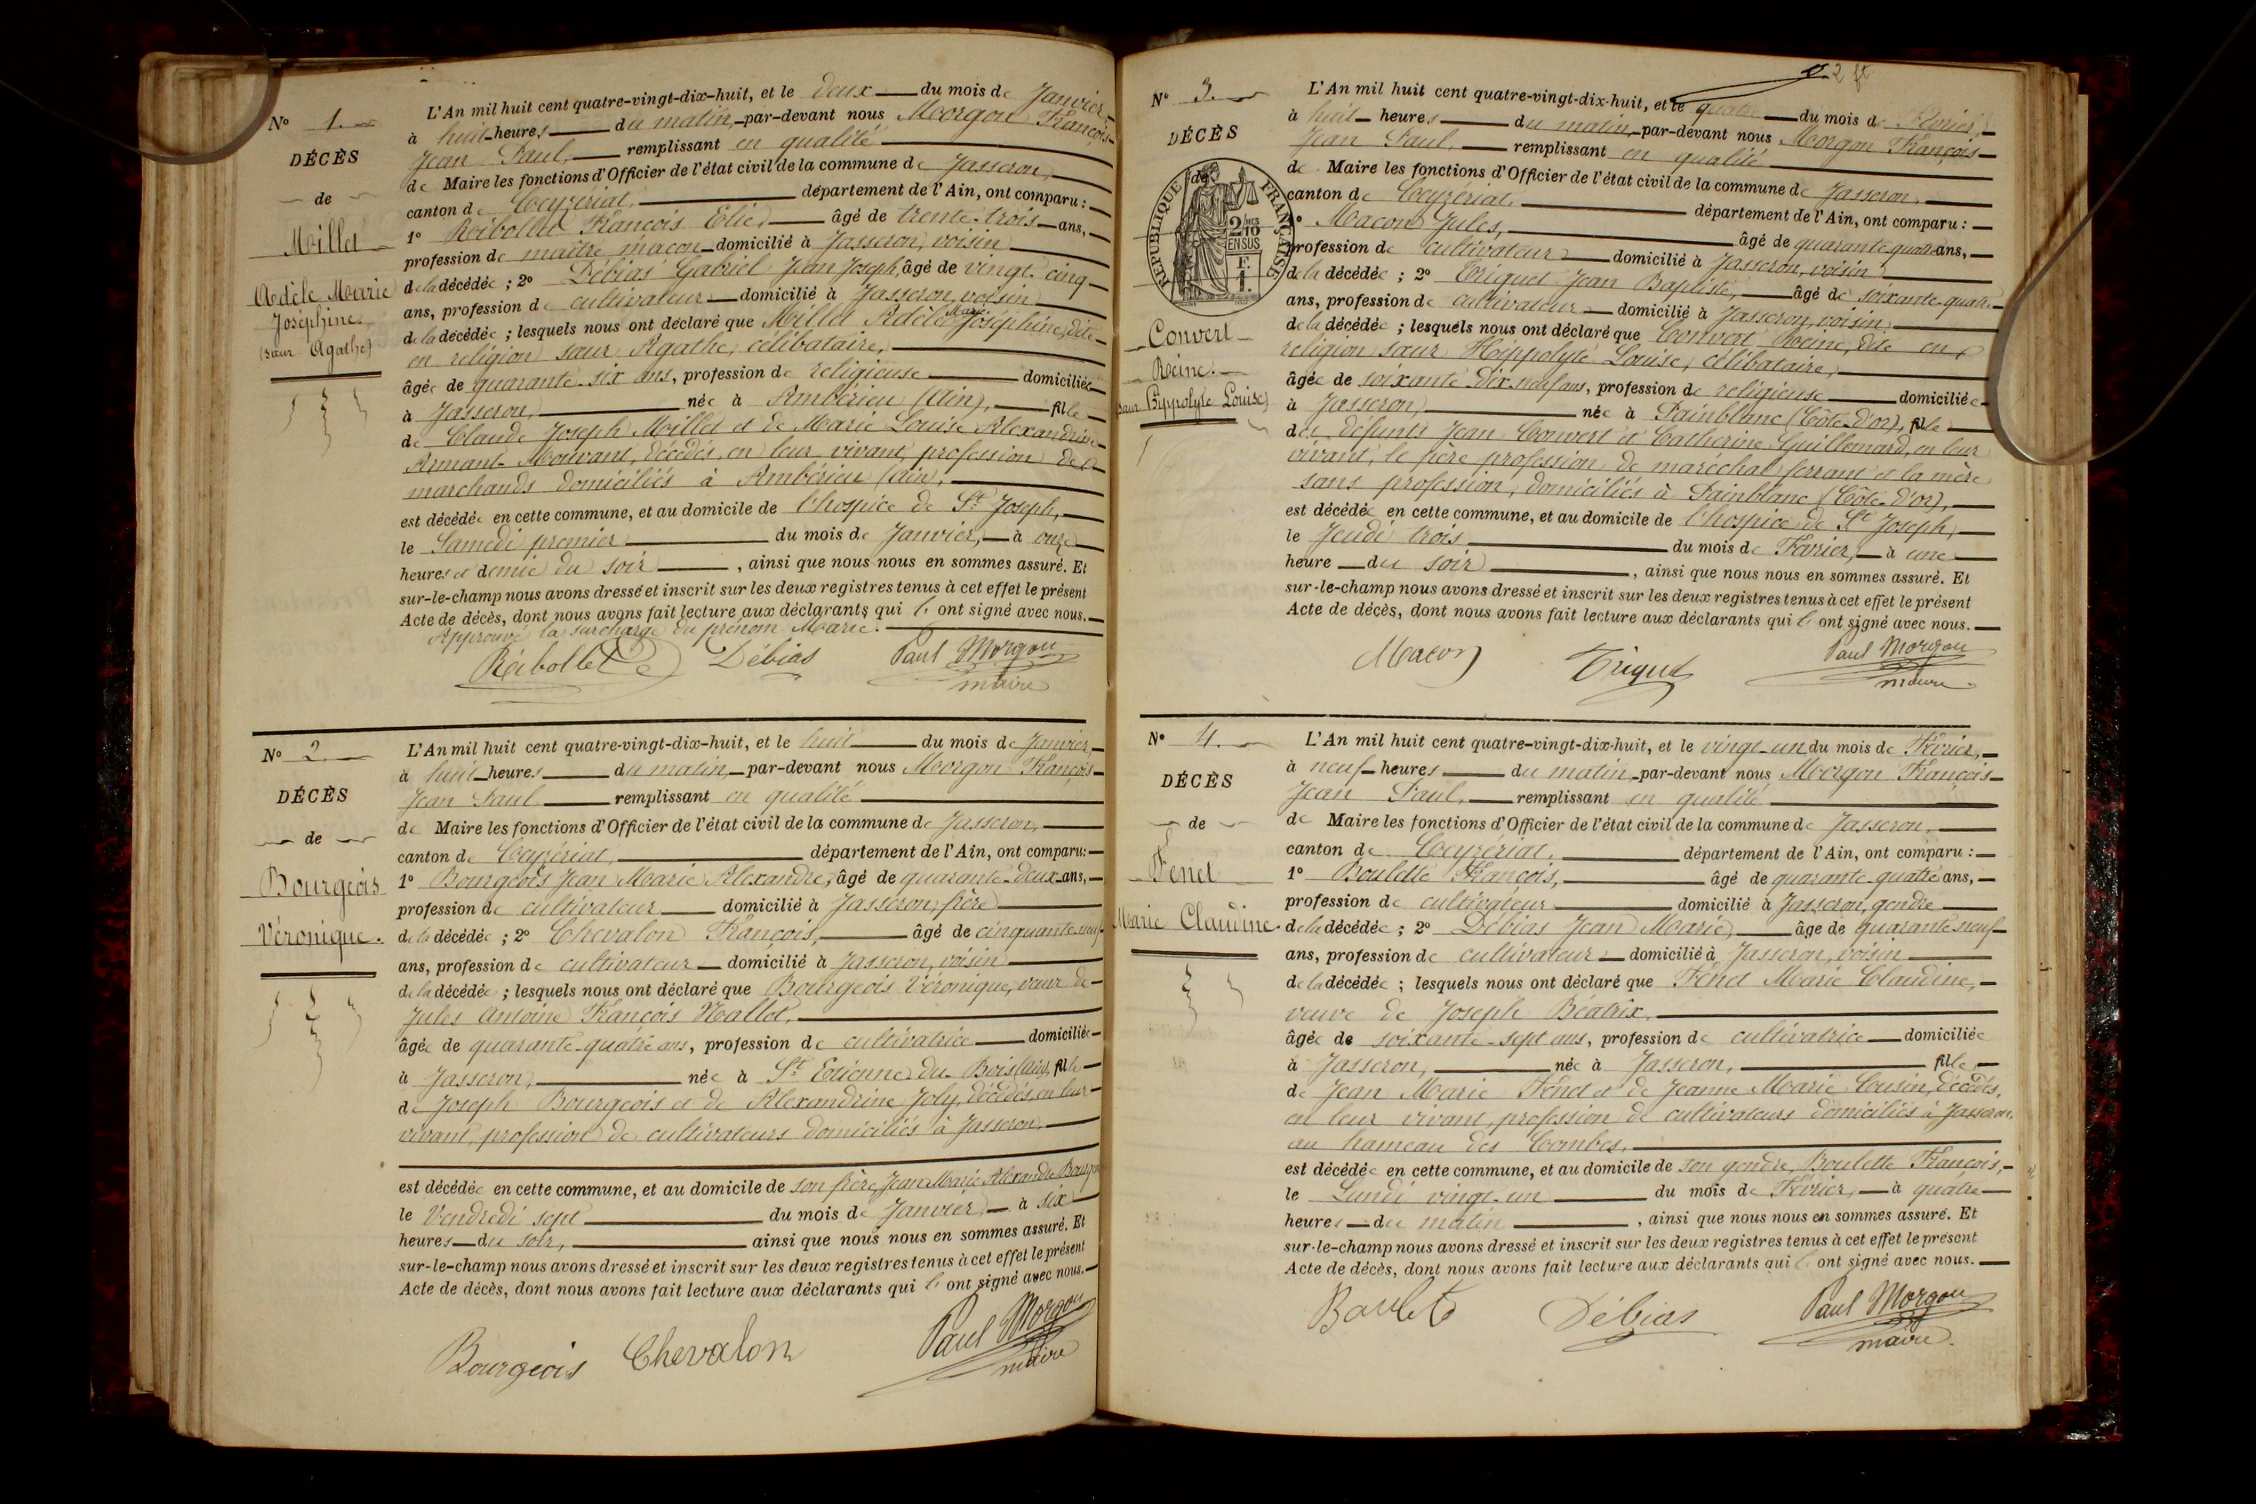 N° 1.
DÉCÈS
de
Millet
Adèle Marie
Joséphine
(sœur Agathe)
L'An mil huit cent quatre-vingt-dix-huit, et le deux du mois de Janvier,
à huit heures du matin, par-devant nous Morgon François
Jean Paul, remplissant en qualité
de Maire les fonctions d'Officier de l'état civil de la commune de Jasseron,
canton de Ceyzériat, département de l'Ain, ont comparu :
1° Réibollet François Elie, âgé de trente-trois ans,
profession de maître maçon domicilié à Jasseron, voisin
de la décédée ; 2° Débias Gabriel Jean Joseph, âgé de vingt-cinq
ans, profession de cultivateur domicilié à Jasseron, voisin
de la décédée ; lesquels nous ont déclaré que Millet Adèle Marie Joséphine, dite
en religion sœur Agathe, célibataire,
âgée de quarante-six ans, profession de religieuse domiciliée
à Jasseron, née à Ambérieu (Ain), fille
de Claude Joseph Millet et de Marie Louise Alexandrine
Armant-Mouvant, décédés, en leur vivant, profession de
marchands domiciliés à Ambérieu (Ain),
est décédée en cette commune, et au domicile de l'hospice de St Joseph,
le Samedi premier du mois de Janvier, à onze
heures et demie du soir, ainsi que nous nous en sommes assuré. Et
sur-le-champ nous avons dressé et inscrit sur les deux registres tenus à cet effet le présent
Acte de décès, dont nous avons fait lecture aux déclarants qui l' ont signé avec nous.
Approuvé la surcharge du prénom Marie.
Réibollet Débias Paul Morgon
maire
N° 2.
DÉCÈS
de
Bourgeois
Véronique.
L'An mil huit cent quatre-vingt-dix-huit, et le huit du mois de Janvier,
à huit heures du matin, par-devant nous Morgon François
Jean Paul remplissant en qualité
de Maire les fonctions d'Officier de l'état civil de la commune de Jasseron,
canton de Ceyzériat, département de l'Ain, ont comparu :
1° Bourgeois Jean Marie Alexandre, âgé de quarante-deux ans,
profession de cultivateur domicilié à Jasseron, frère
de la décédée ; 2° Chevalon François, âgé de cinquante-neuf
ans, profession de cultivateur domicilié à Jasseron, voisin
de la décédée ; lesquels nous ont déclaré que Bourgeois Véronique, veuve de
Jules Antoine François Mallet,
âgée de quarante-quatre ans, profession de cultivatrice domiciliée
à Jasseron, née à St Etienne-du-Bois (Ain), fille
de Joseph Bourgeois et de Alexandrine Joly, décédés, en leur
vivant, profession de cultivateurs domiciliés à Jasseron,
est décédée en cette commune, et au domicile de son frère, Jean Marie Alexandre Bourgeois
le Vendredi sept du mois de Janvier, à six
heures du soir, ainsi que nous nous en sommes assuré. Et
sur-le-champ nous avons dressé et inscrit sur les deux registres tenus à cet effet le présent
Acte de décès, dont nous avons fait lecture aux déclarants qui l' ont signé avec nous.
Bourgeois Chevalon Paul Morgon
maire
2 ft
N° 3.
DÉCÈS
de
RÉPUBLIQUE FRANÇAISE
2/10
EN SUS
F.
1.
Convert
Reine.
(sœur Hyppolyte Louise)
L'An mil huit cent quatre-vingt-dix-huit, et le quatre du mois de Février,
à huit heures du matin, par-devant nous Morgon François
Jean Paul, remplissant en qualité
de Maire les fonctions d'Officier de l'état civil de la commune de Jasseron,
canton de Ceyzériat, département de l'Ain, ont comparu :
1° Macon Jules, âgé de quarante-quatre ans,
profession de cultivateur domicilié à Jasseron, voisin
de la décédée ; 2° Triquet Jean Baptiste, âgé de soixante-quatre
ans, profession de cultivateur domicilié à Jasseron, voisin
de la décédée ; lesquels nous ont déclaré que Convert Reine, dite en
religion sœur Hyppolyte Louise, célibataire,
âgée de soixante-dix-neuf ans, profession de religieuse domiciliée
à Jasseron, née à Painblanc (Côte-d'or), fille
des défunts Jean Convert et Catherine Guillemard, en leur
vivant, le père profession de maréchal ferrant et la mère
sans profession, domiciliés à Painblanc (Côte-d'or),
est décédée en cette commune, et au domicile de l'hospice de St Joseph,
le Jeudi trois du mois de Février, à une
heure du soir, ainsi que nous nous en sommes assuré. Et
sur-le-champ nous avons dressé et inscrit sur les deux registres tenus à cet effet le présent
Acte de décès, dont nous avons fait lecture aux déclarants qui l' ont signé avec nous.
Macon Triquet Paul Morgon
maire
N° 4.
DÉCÈS
de
Fenet
Marie Claudine.
L'An mil huit cent quatre-vingt-dix-huit, et le vingt-un du mois de Février,
à neuf heures du matin, par-devant nous Morgon François
Jean Paul, remplissant en qualité
de Maire les fonctions d'Officier de l'état civil de la commune de Jasseron,
canton de Ceyzériat, département de l'Ain, ont comparu :
1° Boulette François, âgé de quarante-quatre ans,
profession de cultivateur domicilié à Jasseron, gendre
de la décédée ; 2° Débias Jean Marie, âgé de quarante-neuf
ans, profession de cultivateur domicilié à Jasseron, voisin
de la décédée ; lesquels nous ont déclaré que Fénet Marie Claudine,
veuve de Joseph Béatrix,
âgée de soixante-sept ans, profession de cultivatrice domiciliée
à Jasseron, née à Jasseron, fille
de Jean Marie Fénet et de Jeanne Marie Cousin, décédés,
en leur vivant, profession de cultivateurs domiciliés à Jasseron,
au hameau des Combes,
est décédée en cette commune, et au domicile de son gendre, Boulette François,
le Lundi vingt-un du mois de Février, à quatre
heures du matin, ainsi que nous nous en sommes assuré. Et
sur-le-champ nous avons dressé et inscrit sur les deux registres tenus à cet effet le présent
Acte de décès, dont nous avons fait lecture aux déclarants qui l' ont signé avec nous.
Boulete Débias Paul Morgon
maire.